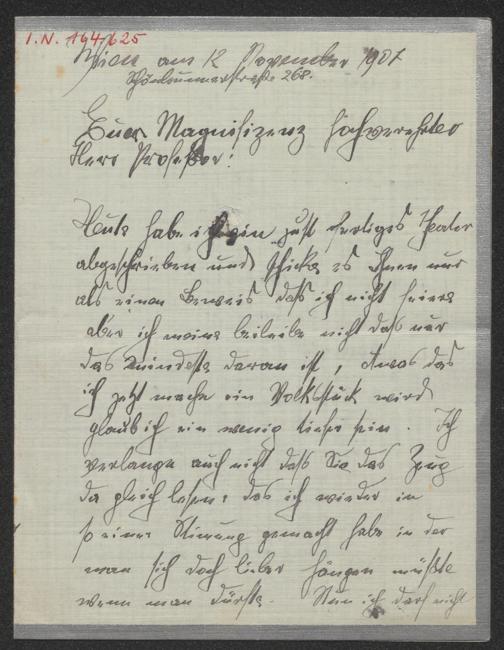 I.N. 194.625
Wien am 12 November 1907
Schönbrunnerstraße 268.
Euer Magnifizenz hochverehrter
Herr Professor!
Heute habe ich ein just fertiges Theater
abgeschrieben und schicke es Ihnen nur
als einen Beweis daß ich nicht feiere
aber ich meine beileibe nicht daß nur
das mindeste daran ist, etwas das
ich jetzt mache ein Volksstück wird
glaub ich ein wenig tiefer sein. Ich
verlange auch nicht daß Sie das Zeug
da gleich lesen: das ich wieder in
so einer Stimung gemacht habe in der
man sich doch lieber hängen müßte
wenn man dürfte. Nun ich darf nicht